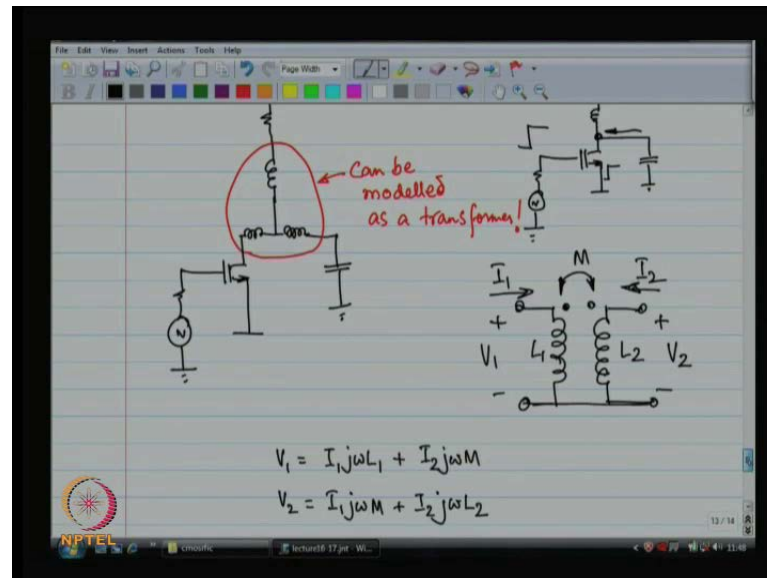 File Edit View Insert Actions Tools Help
Page Width
B I
Can be
modelled
as a transformer!
M
I₁
I₂
+
+
V₁
L₁
L₂
V₂
-
-
V₁ = I₁jωL₁ + I₂jωM
V₂ = I₁jωM + I₂jωL₂
13 / 14
NPTEL
cmosrfic
lecture16-17.jnt - Wi...
11:48